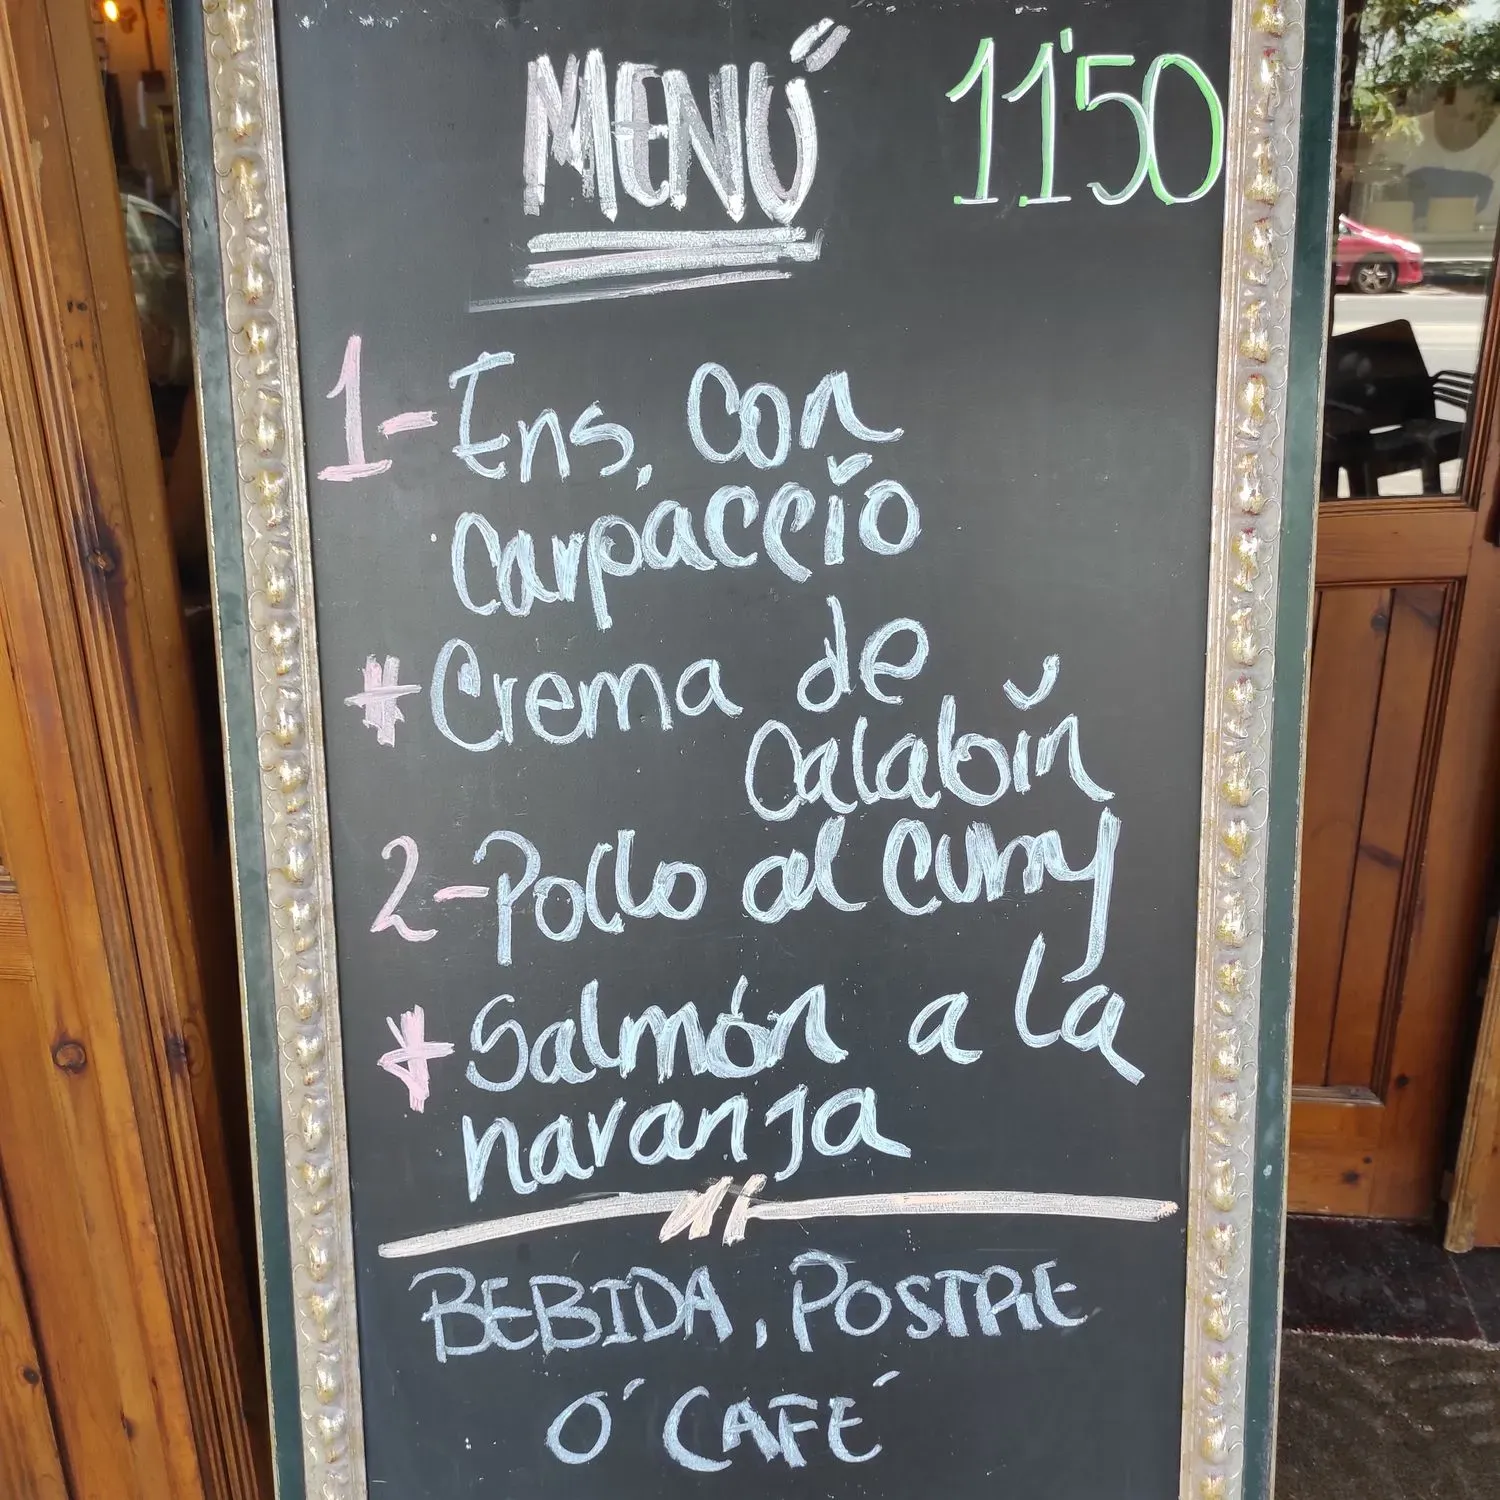 MENÚ 11'50
1- Ens. con
carpaccio
* Crema de
Calabin
2- Pollo al curry
* Salmón a la
naranja
BEBIDA, POSTRE
O' CAFÉ